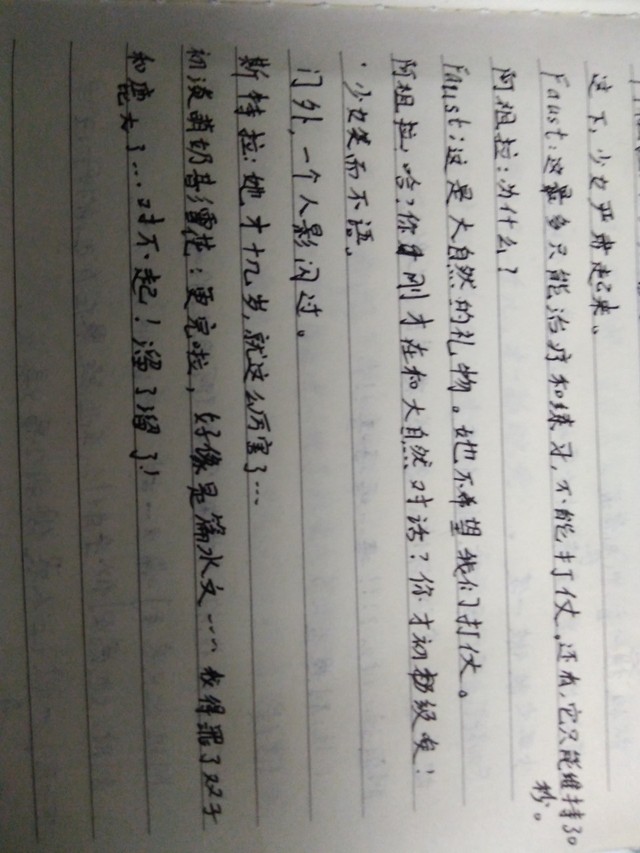 这下,少女严肃起来。
Faust:这最多只能治疗和练习,不能打仗,还有,它只能维持30秒。
阿祖拉:为什么?
Faust:这是大自然的礼物。她不希望我们打仗。
阿祖拉:哈?你刚才在和大自然对话?你才初级吴!
·少女笑而不语。
门外,一个人影闪过。
斯特拉:她才十几岁,就这么厉害了…
更完啦,好像是篇水文…我得罪了双子
了…对不起!溜了溜了!